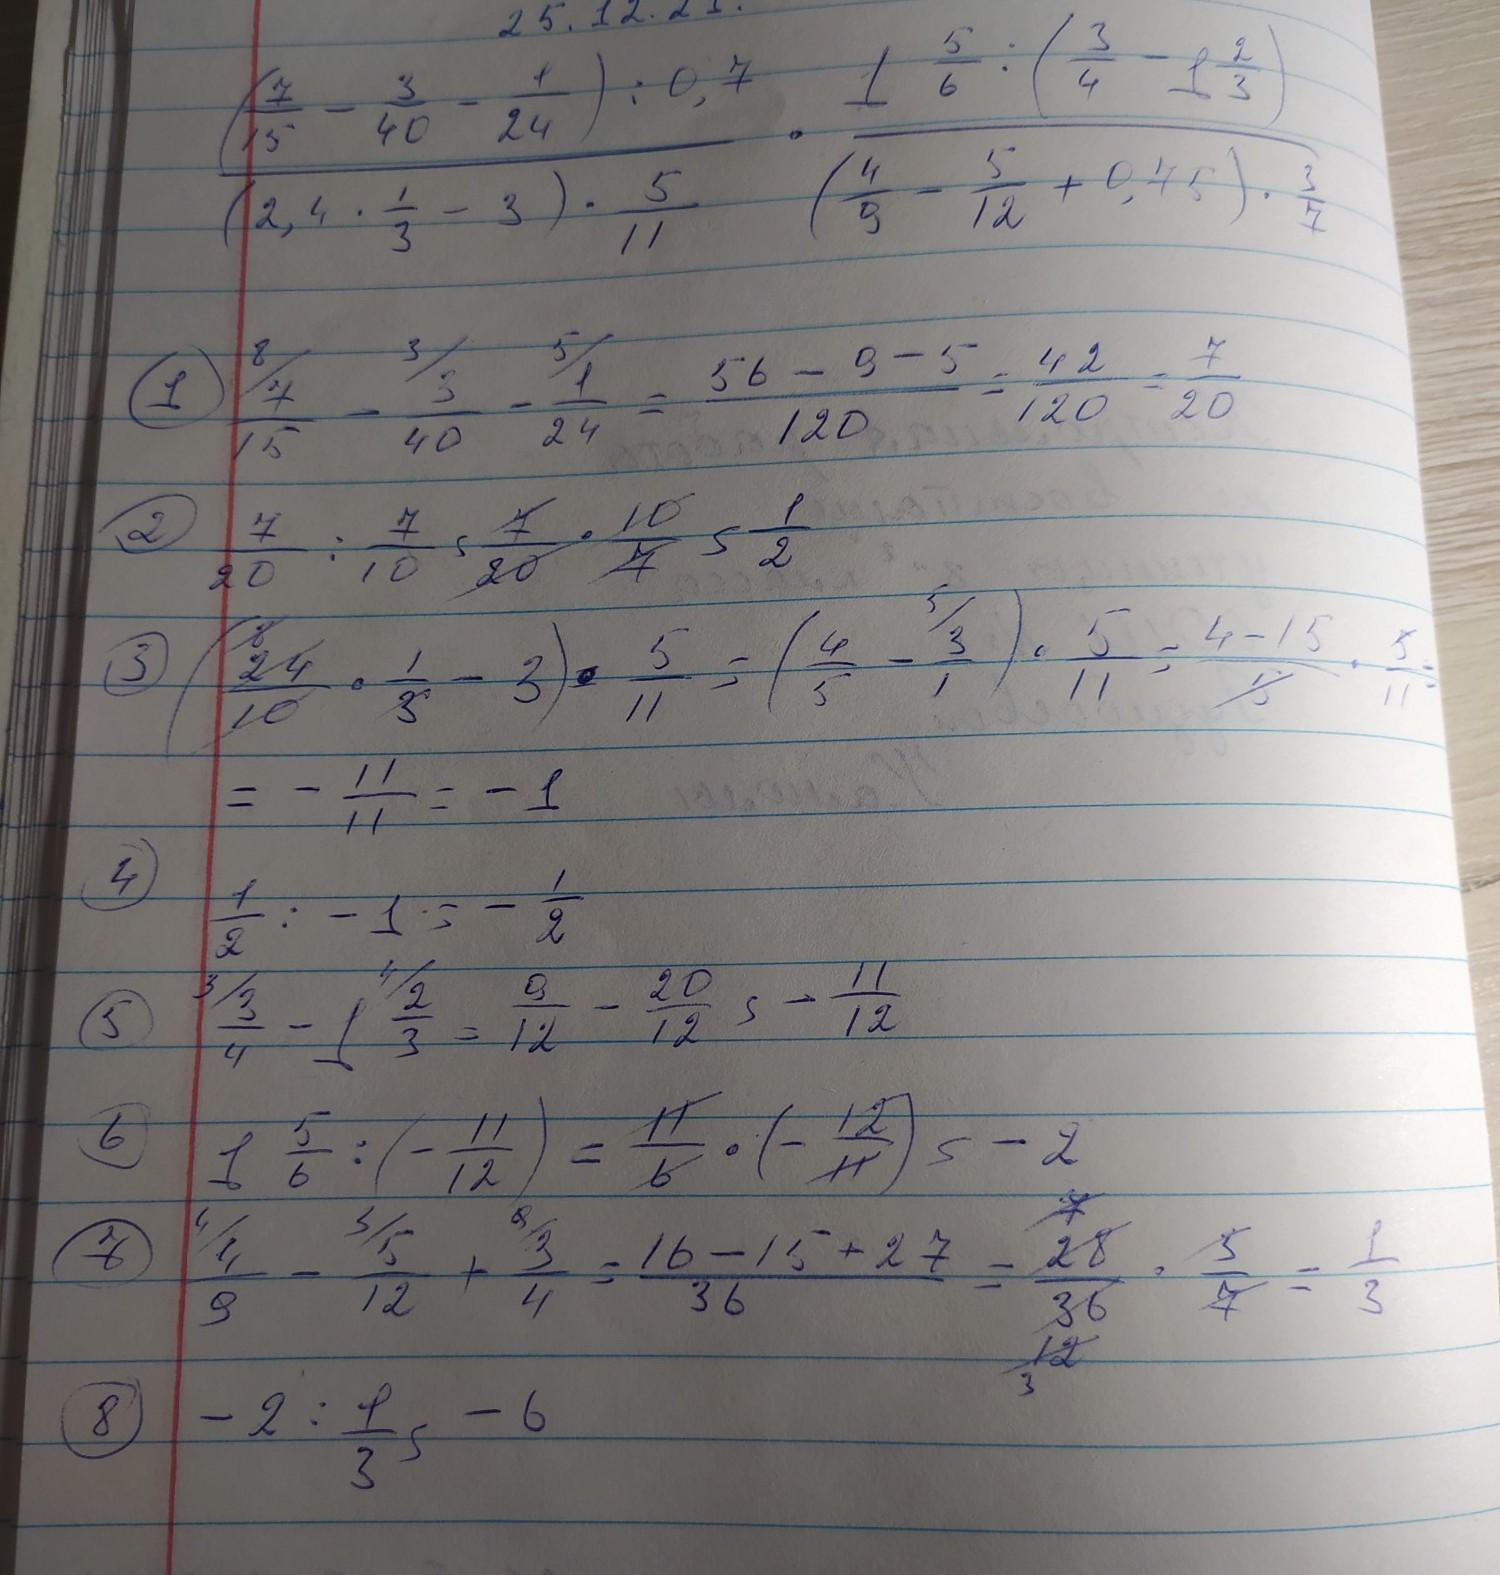 25.12.21.
(7/15 - 3/40 - 1/24) : 0,7 / (2,4 · 1/3 - 3) · 5/11 · 1 5/6 : (3/4 - 1 2/3) / (4/9 - 5/12 + 0,75) · 3/7
① 8/ 7/15 - 3/ 3/40 - 5/ 1/24 = 56 - 9 - 5 / 120 = 42/120 = 7/20
② 7/20 : 7/10 = 7/20 · 10/7 = 1/2
③ (24/10 · 1/3 - 3) · 5/11 = (4/5 - 5/ 3/1) · 5/11 = 4 - 15 / 5 · 5/11 =
= - 11/11 = - 1
④ 1/2 : - 1 = - 1/2
⑤ 3/ 3/4 - 1 4/ 2/3 = 9/12 - 20/12 = - 11/12
⑥ 1 5/6 : (- 11/12) = 11/6 · (- 12/11) = - 2
⑦ 4/ 4/9 - 3/ 5/12 + 9/ 3/4 = 16 - 15 + 27 / 36 = 28/36 · 3/7 = 1/3
⑧ - 2 : 1/3 = - 6